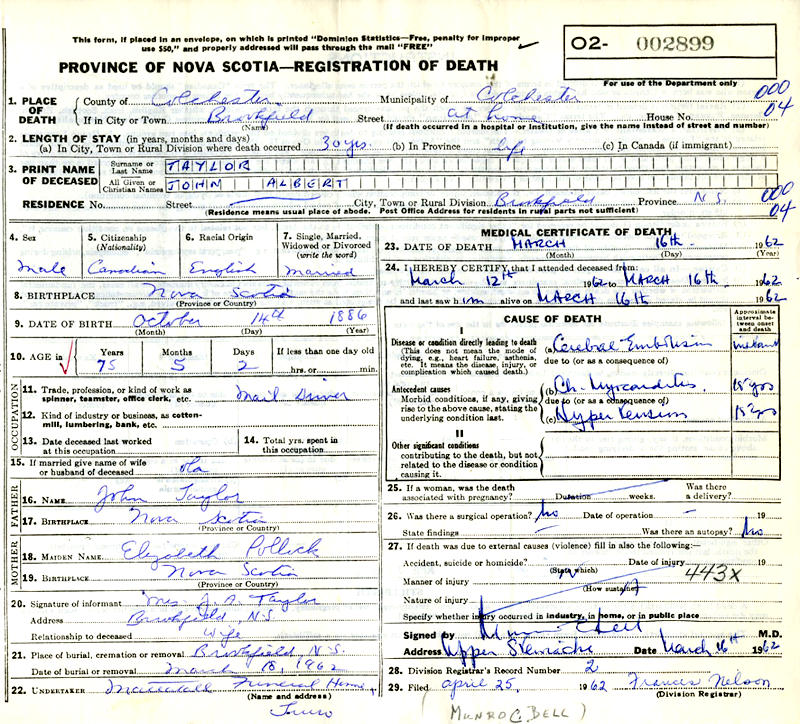 This form, if placed in an envelope, on which is printed "Dominion Statistics—Free, penalty for improper
use $50," and properly addressed will pass through the mail "FREE"
O2- 002899
PROVINCE OF NOVA SCOTIA—REGISTRATION OF DEATH
For use of the Department only
1. PLACE OF DEATH County of Colchester Municipality of Colchester 000
If in City or Town Brookfield Street at home House No. 04
(Name) (If death occurred in a hospital or Institution, give the name instead of street and number)
2. LENGTH OF STAY (in years, months and days)
(a) In City, Town or Rural Division where death occurred 30 yrs. (b) In Province life (c) In Canada (if immigrant)
3. PRINT NAME OF DECEASED Surname or Last Name TAYLOR
All Given or Christian Names JOHN ALBERT
RESIDENCE No. Street City, Town or Rural Division Brookfield Province N.S. 000
(Residence means usual place of abode. Post Office Address for residents in rural parts not sufficient) 04
4. Sex 5. Citizenship (Nationality) 6. Racial Origin 7. Single, Married, Widowed or Divorced (write the word)
Male Canadian English Married
8. BIRTHPLACE Nova Scotia
(Province or Country)
9. DATE OF BIRTH October 14th 1886
(Month) (Day) (Year)
10. AGE in Years Months Days If less than one day old
75 5 2 hrs. or min.
OCCUPATION
11. Trade, profession, or kind of work as spinner, teamster, office clerk, etc. Mail Driver
12. Kind of industry or business, as cotton-mill, lumbering, bank, etc.
13. Date deceased last worked at this occupation 14. Total yrs. spent in this occupation
15. If married give name of wife or husband of deceased Ola
FATHER
16. NAME John Taylor
17. BIRTHPLACE Nova Scotia
(Province or Country)
MOTHER
18. MAIDEN NAME Elizabeth Pollock
19. BIRTHPLACE Nova Scotia
(Province or Country)
20. Signature of informant Mrs. J. A. Taylor
Address Brookfield, N.S
Relationship to deceased Wife
21. Place of burial, cremation or removal Brookfield, N.S.
Date of burial or removal March 18, 1962
22. UNDERTAKER Funeral Home,
(Name and address)
Truro
MEDICAL CERTIFICATE OF DEATH
23. DATE OF DEATH MARCH 16th 1962
(Month) (Day) (Year)
24. I HEREBY CERTIFY that I attended deceased from:
March 12th 1962 to MARCH 16th 1962
and last saw him alive on MARCH 16th 1962
CAUSE OF DEATH
Approximate interval between onset and death
I
Disease or condition directly leading to death (a) Cerebral Embolism instant
(This does not mean the mode of dying, e.g., heart failure, asthenia, etc. It means the disease, injury, or complication which caused death.)
due to (or as a consequence of)
Antecedent causes (b) Ch. Myocarditis. 15 yrs
Morbid conditions, if any, giving rise to the above cause, stating the underlying condition last.
due to (or as a consequence of)
(c) Hypertension 15 yrs
II
Other significant conditions
contributing to the death, but not related to the disease or condition causing it.
25. If a woman, was the death associated with pregnancy? Duration weeks. Was there a delivery?
26. Was there a surgical operation? No Date of operation — 19
State findings — Was there an autopsy? No
27. If death was due to external causes (violence) fill in also the following:—
Accident, suicide or homicide? Date of injury 19
(State which) 443X
Manner of injury
(How sustained)
Nature of injury
Specify whether injury occurred in industry, in home, or in public place
Signed by M.D.
Address Upper Stewiacke Date March 16th 1962
28. Division Registrar's Record Number 2
29. Filed april 25, 1962 Francis Nelson
(Division Registrar)
( MUNRO C. BELL )